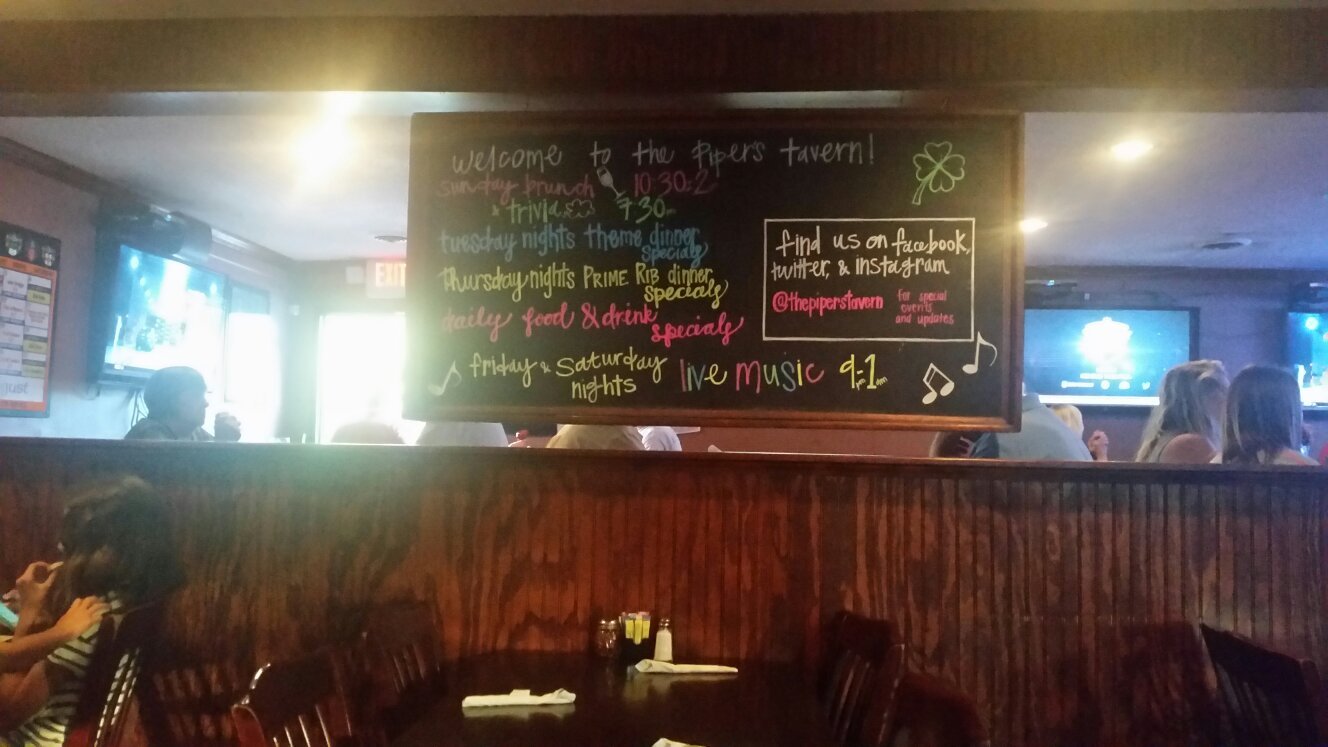 welcome to the Piper's tavern!
sunday brunch 10:30-2
& trivia 7:30
tuesday nights theme dinner
specials
thursday nights PRIME RIB dinner
specials
daily food & drink
specials
friday & saturday
nights
live music 9pm-1am
find us on facebook,
twitter, & instagram
@thepiperstavern
for special
events
and updates
EXIT